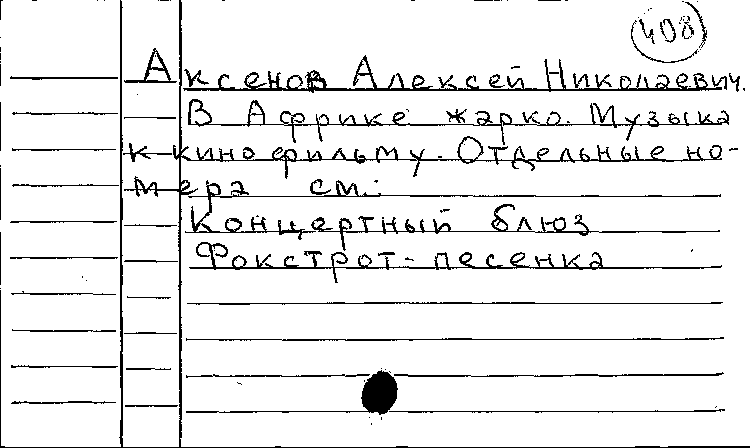 408
Аксенов Алексей Николаевич.
В Африке жарко. Музыка
к кинофильму. Отдельные но-
мера см.:
Концертный блюз
Фокстрот-песенка